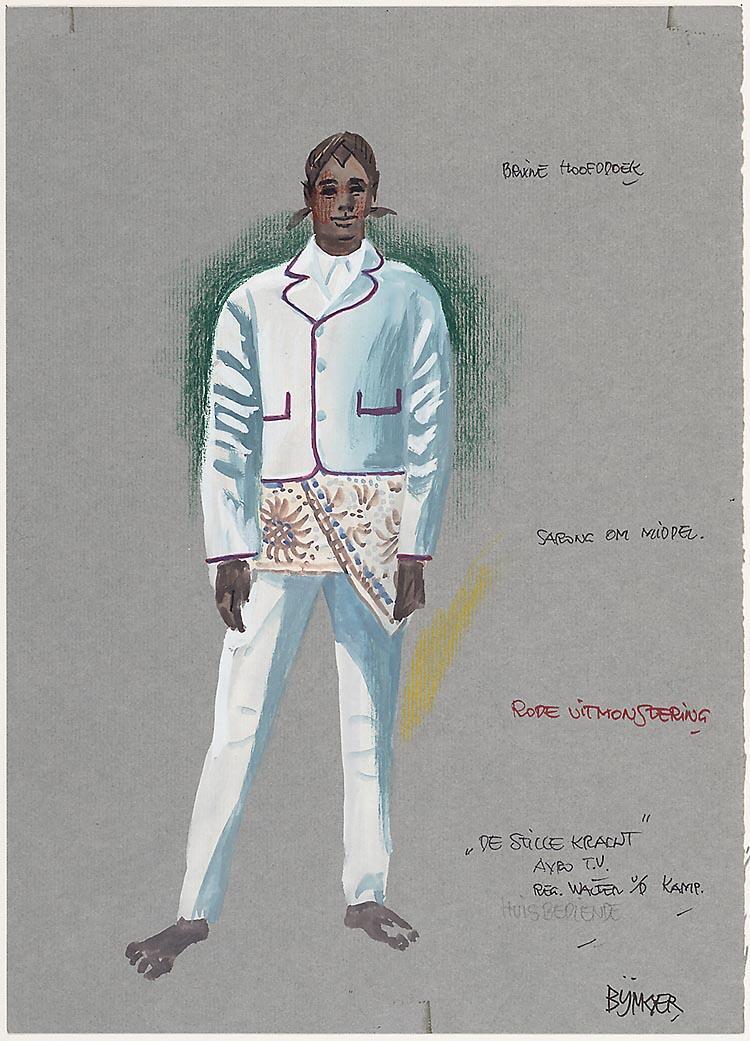 BRUINE HOOFDDOEK
SARONG OM MIDDEL.
RODE UITMONSTERING
„DE STILLE KRACHT"
AVRO T.V.
REG. WALTER V/D KAMP.
HUISBEDIENDE